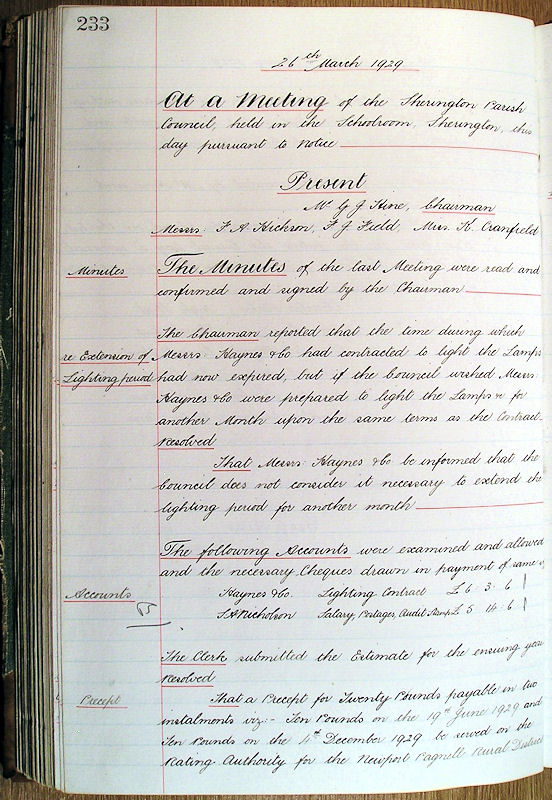 233
26th March 1929
At a Meeting of the Sherington Parish
Council, held in the Schoolroom, Sherington, this
day pursuant to Notice
Present
Mr G J Hine, Chairman
Messrs F. A. Hickson, F J Field, Miss K. Cranfield
Minutes
The Minutes of the last Meeting were read and
confirmed and signed by the Chairman
re Extension of
Lighting period
The Chairman reported that the time during which
Messrs Haynes & Co had contracted to light the Lamps
had now expired, but if the Council wished Messrs
Haynes & Co were prepared to light the Lamps for
another Month upon the same terms as the Contract
Resolved
That Messrs Haynes & Co be informed that the
Council does not consider it necessary to extend the
lighting period for another month
The following Accounts were examined and allowed
and the necessary Cheques drawn in payment of same
Accounts
Haynes & Co. Lighting Contract £6 : 3 : 6
S. A Nicholson Salary, Postages, Audit Stamp £5 14 : 6
The Clerk submitted the Estimate for the ensuing year
Resolved
Precept
That a Precept for Twenty Pounds payable in two
instalments viz :- Ten Pounds on the 19th June 1929 and
Ten Pounds on the 4th December 1929 be served on the
Rating Authority for the Newport Pagnell Rural District